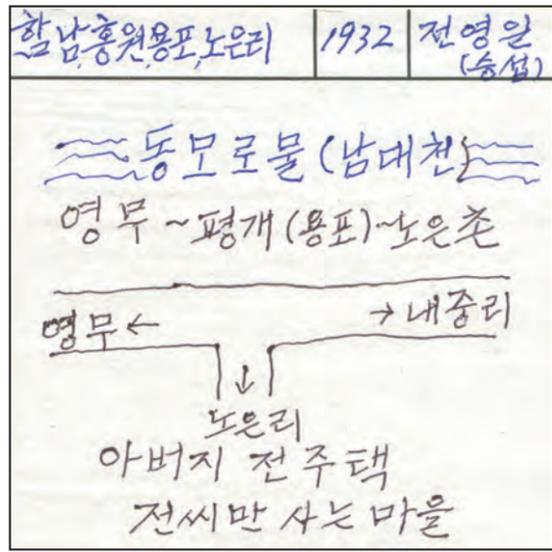 함남,홍원,용포,노은리 1932 전영일
(승섭)
동모로물(남대천)
영무~평개(용포)~노은촌
영무← →내중리
↓
노은리
아버지 전주택
전씨만 사는 마을